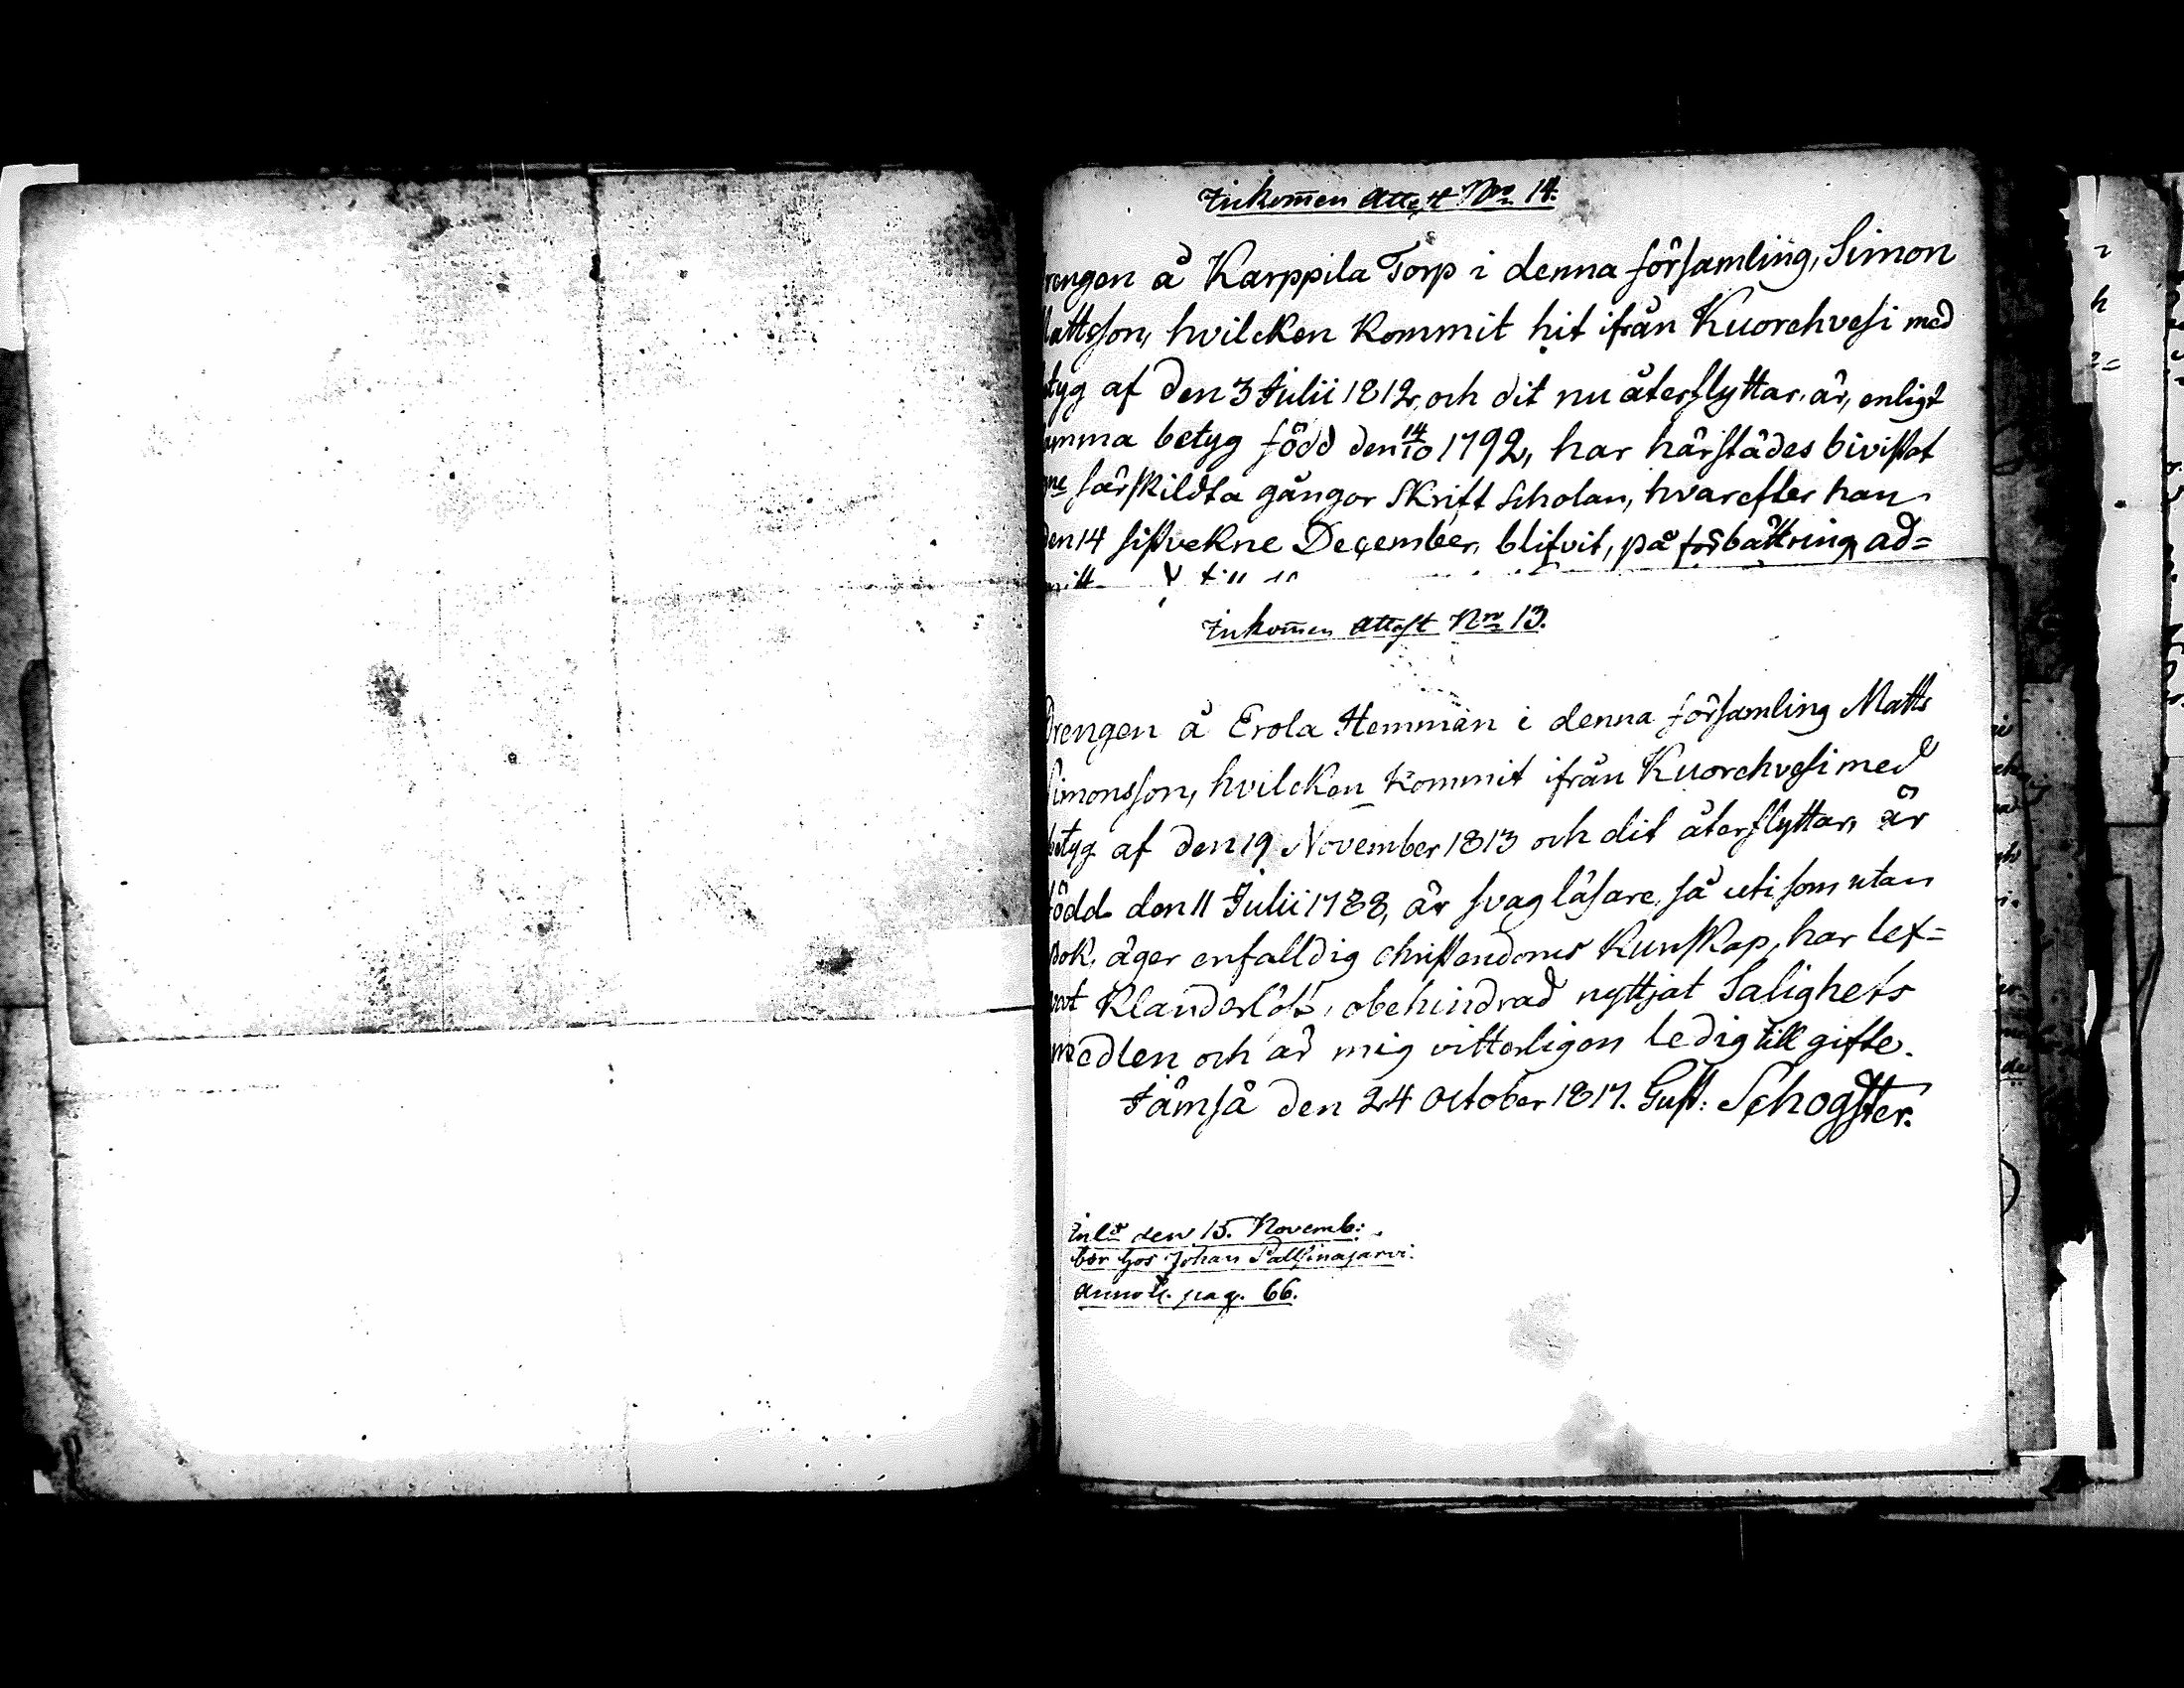 Inkom̅en Attest N:ro 14.
rengen å Karppila Torp i denna församling, Simon
attsson, hvilcken kommit hit ifrån Kuorehvesi med
tyg af den 3 Julii 1812, och dit nu återflyttar, är, enligt
amma betyg född den 14/10 1792, har härstädes bivistat
särskildta gångor Skrift Scholan, hvarefter han
den 14 sistvekne December, blifvit, på förbättring ad=
Inkom̅en Attest N:ro 13.
Drengen å Erola Hemman i denna församling Matts
Simonsson, hvilcken kommit ifrån Kuorehvesi med
betyg af den 19 November 1813 och dit återflyttar, är
född den 11 Julii 1788, är svag läsare, så uti som utan
bok, äger enfalldig christendoms kunskap, har lef=
vat klanderlöst, obehindrad nyttjat Salighets
medlen och är mig vitterligen ledig till gifte.
Jämsä den 24 October 1817. Gust: Schogster.
Inl:t den 15. Novemb:
bor hos Johan Pallinajärvi.
annot. pag. 66.